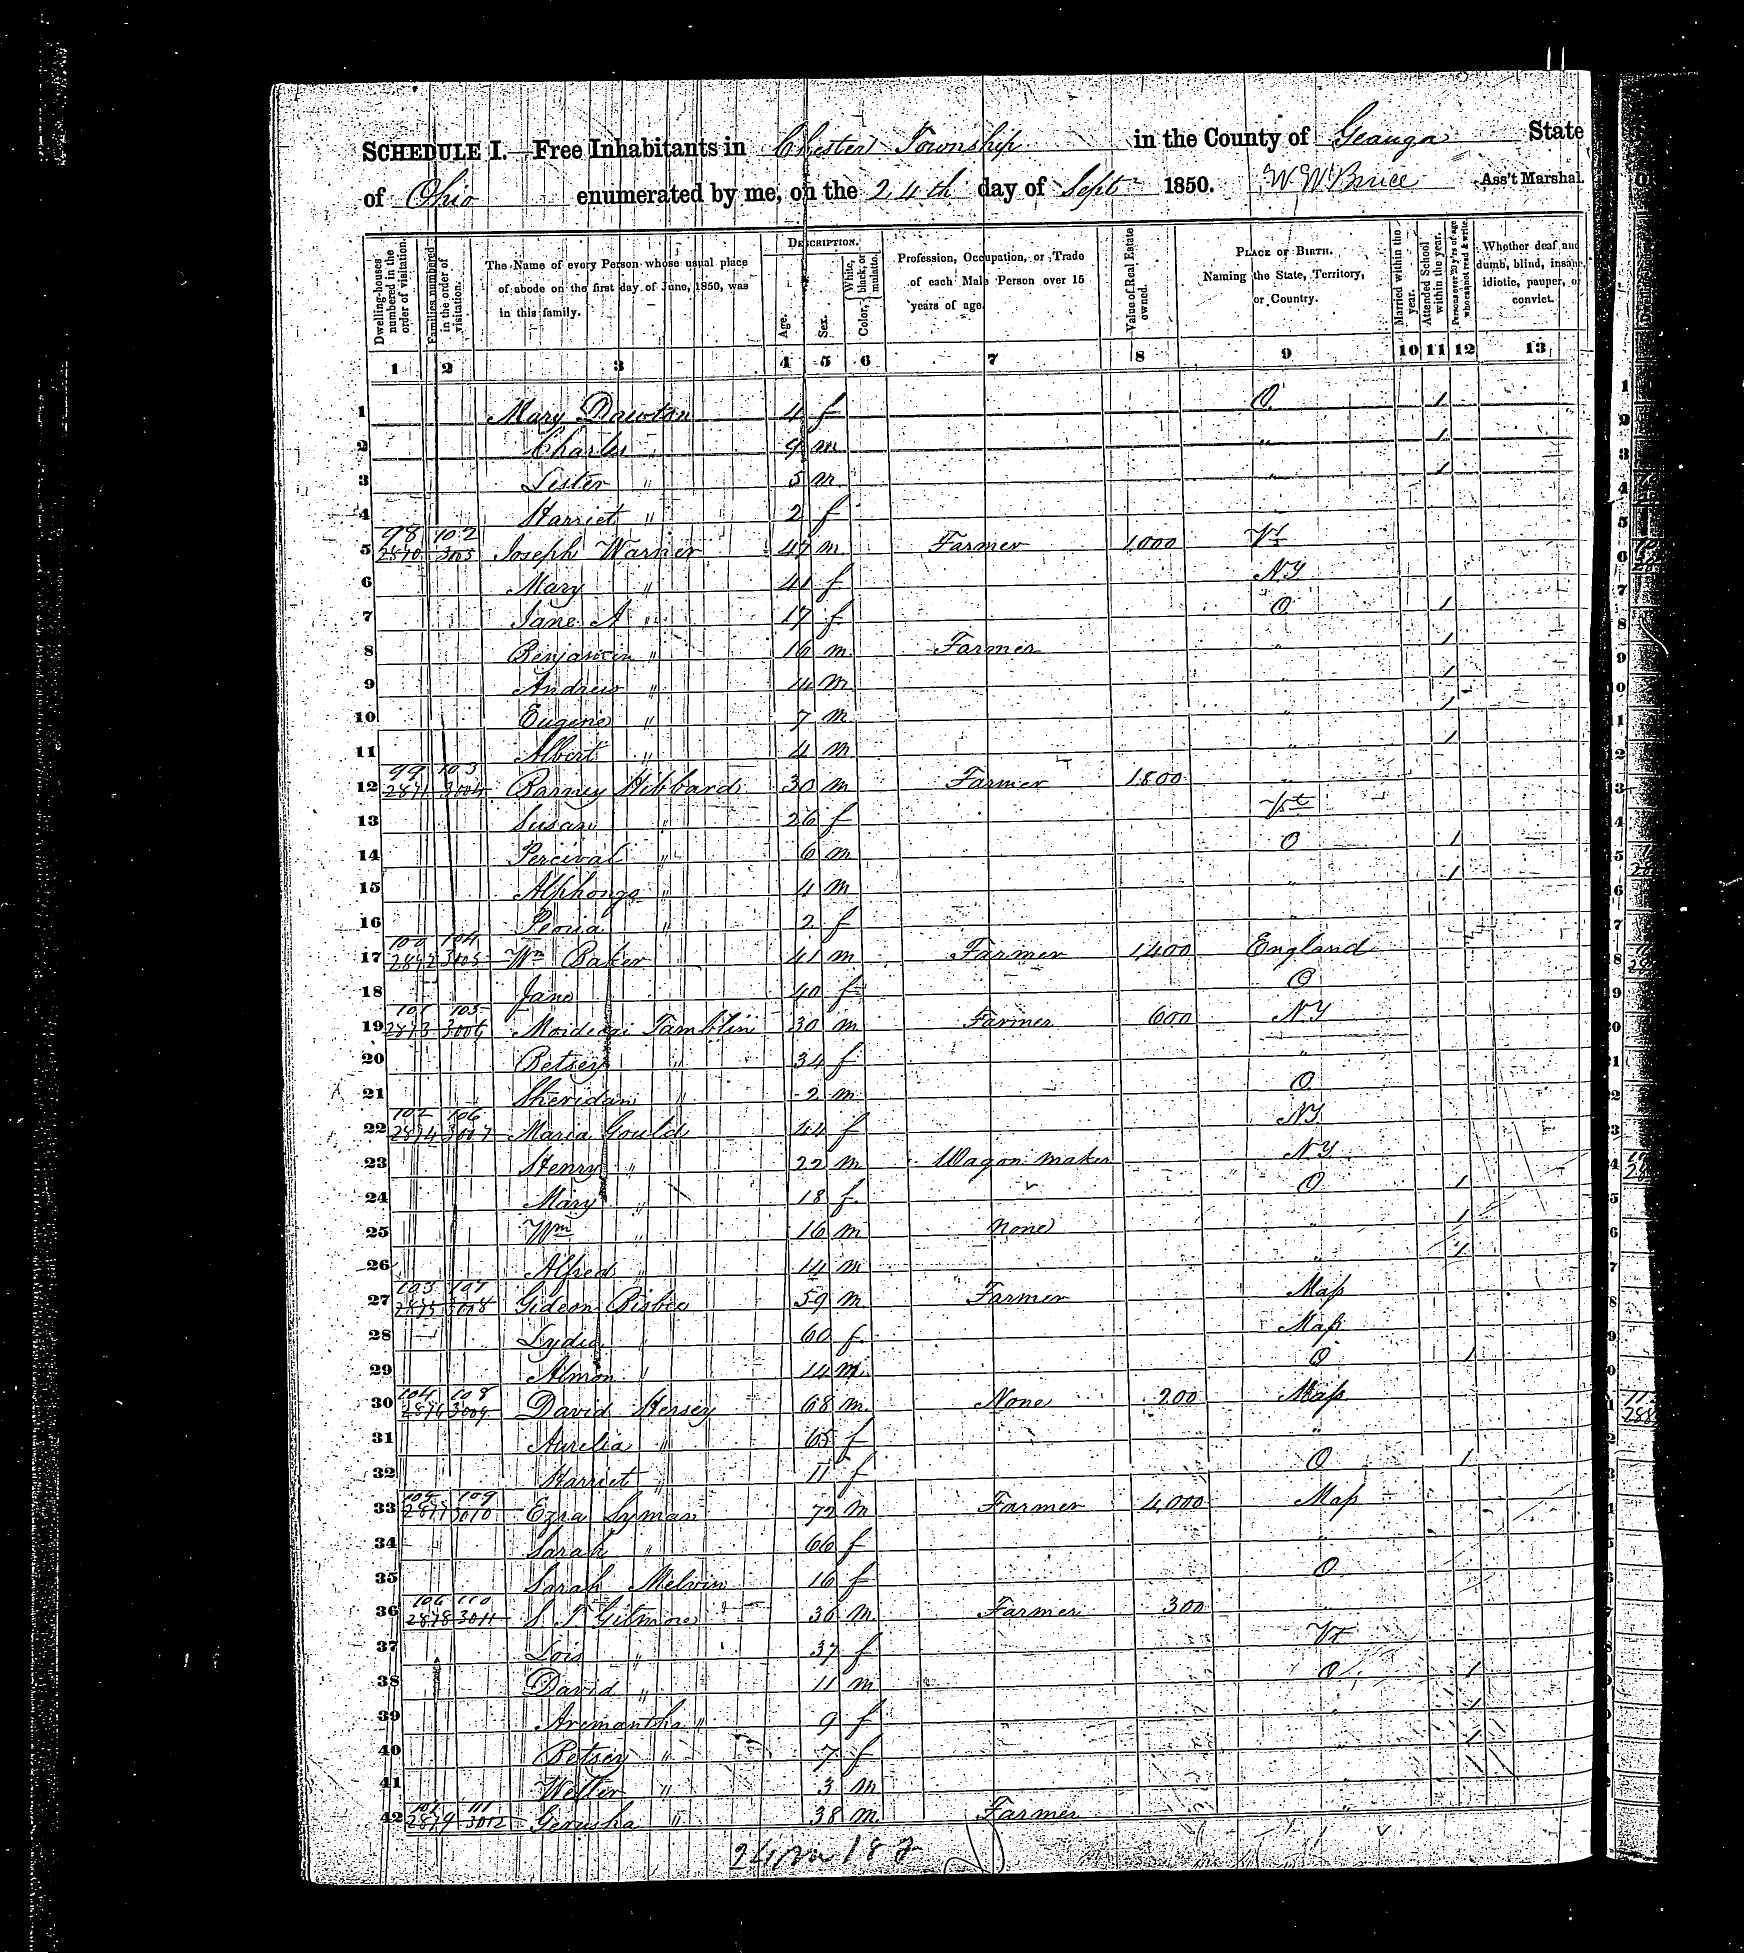 SCHEDULE I.—Free Inhabitants in Chester Township in the County of Geauga State
of Ohio enumerated by me, on the 24th day of Sept 1850. W W Bruce Ass't Marshal.
Dwelling-houses numbered in the order of visitation.
Families numbered in the order of visitation.
The Name of every Person whose usual place of abode on the first day of June, 1850, was in this family.
DESCRIPTION.
Age.
Sex.
Color, White, black, or mulatto.
Profession, Occupation, or Trade of each Male Person over 15 years of age.
Value of Real Estate owned.
PLACE OF BIRTH. Naming the State, Territory, or Country.
Married within the year.
Attended School within the year.
Persons over 20 y'rs of age who cannot read & write.
Whether deaf and dumb, blind, insane, idiotic, pauper, or convict.
1 2 3 4 5 6 7 8 9 10 11 12 13
1 Mary 4 f O 1
2 Charles " 9 m " 1
3 Lister " 5 m " 1
4 Harriet " 2 f
98 102
5 2870 3003 Joseph Warner 47 m Farmer 1000 Vt
6 Mary " 41 f NY
7 Jane A " 17 f O 1
8 Benjamin " 16 m Farmer " 1
9 Andrew " 14 m " 1
10 Eugene " 7 m " 1
11 Albert " 4 m " 1
99 103
12 2871 3004 Barney Hibbard 30 m Farmer 1800 "
13 Susan " 26 f Vt
14 Percival " 6 m O 1
15 Alphonzo " 4 m " 1
16 Peoria " 2 f "
100 104
17 2872 3005 Wm Baker 41 m Farmer 1400 England
18 Jane 40 f O
101 105
19 2873 3006 Mordecai Tamblin 30 m Farmer 600 NY
20 Betsey " 34 f "
21 Sheridan " 2 m O
102 106
22 2874 3007 Maria Gould 44 f NY
23 Henry " 22 m Wagon maker NY
24 Mary " 18 f O 1
25 Wm " 16 m None " 1
26 Alfred " 14 m " 1
103 107
27 2875 3008 Gideon Bisbee 59 m Farmer Mass
28 Lydia " 60 f Mass
29 Almon " 14 m O 1
104 108
30 2876 3009 David Hersey 68 m None 200 Mass
31 Aurelia " 65 f "
32 Harriet " 11 f O 1
105 109
33 2877 3010 Ezra Lyman 72 m Farmer 4000 Mass
34 Sarah " 66 f "
35 Sarah Melvin 16 f O
106 110
36 2878 3011 S T Gilmore 36 m Farmer 300 "
37 Lois " 37 f Vt
38 David " 11 m O 1
39 Aremantha " 9 f " 1
40 Betsey " 7 f " 1
41 Welter " 3 m "
107 111
42 2879 3012 Gerusha " 38 m Farmer "
24 m 18 f